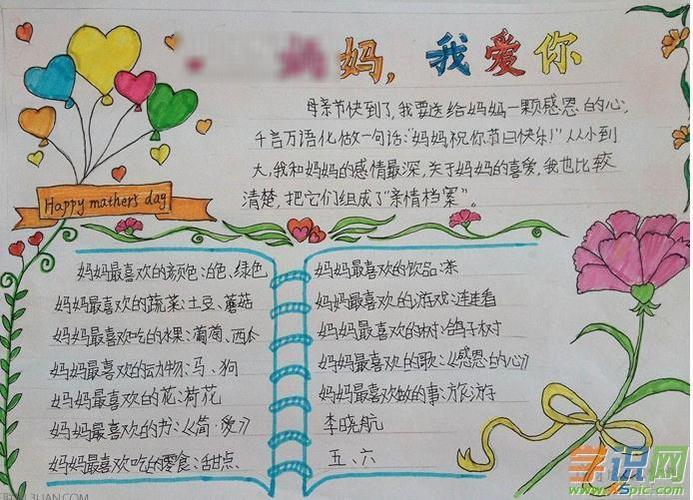 妈妈,我爱你
母亲节快到了,我要送给妈妈一颗感恩的心,
千言万语化做一句话:“妈妈祝你节日快乐!”从小到
大,我和妈妈的感情最深,关于妈妈的喜爱,我也比较
清楚,把它们组成了“亲情档案”。
Happy mathers day
妈妈最喜欢的颜色:白色、绿色
妈妈最喜欢的蔬菜:土豆、蘑菇
妈妈最喜欢吃的水果:葡萄、西瓜
妈妈最喜欢的动物:马、狗
妈妈最喜欢的花:荷花
妈妈最喜欢的书:《简·爱》
妈妈最喜欢吃的零食:甜点
妈妈最喜欢的饮品:茶
妈妈最喜欢的游戏:连连看
妈妈最喜欢的树:鸽子树
妈妈最喜欢的歌:《感恩的心》
妈妈最喜欢做的事:旅游
李晓航
五、六
学识网